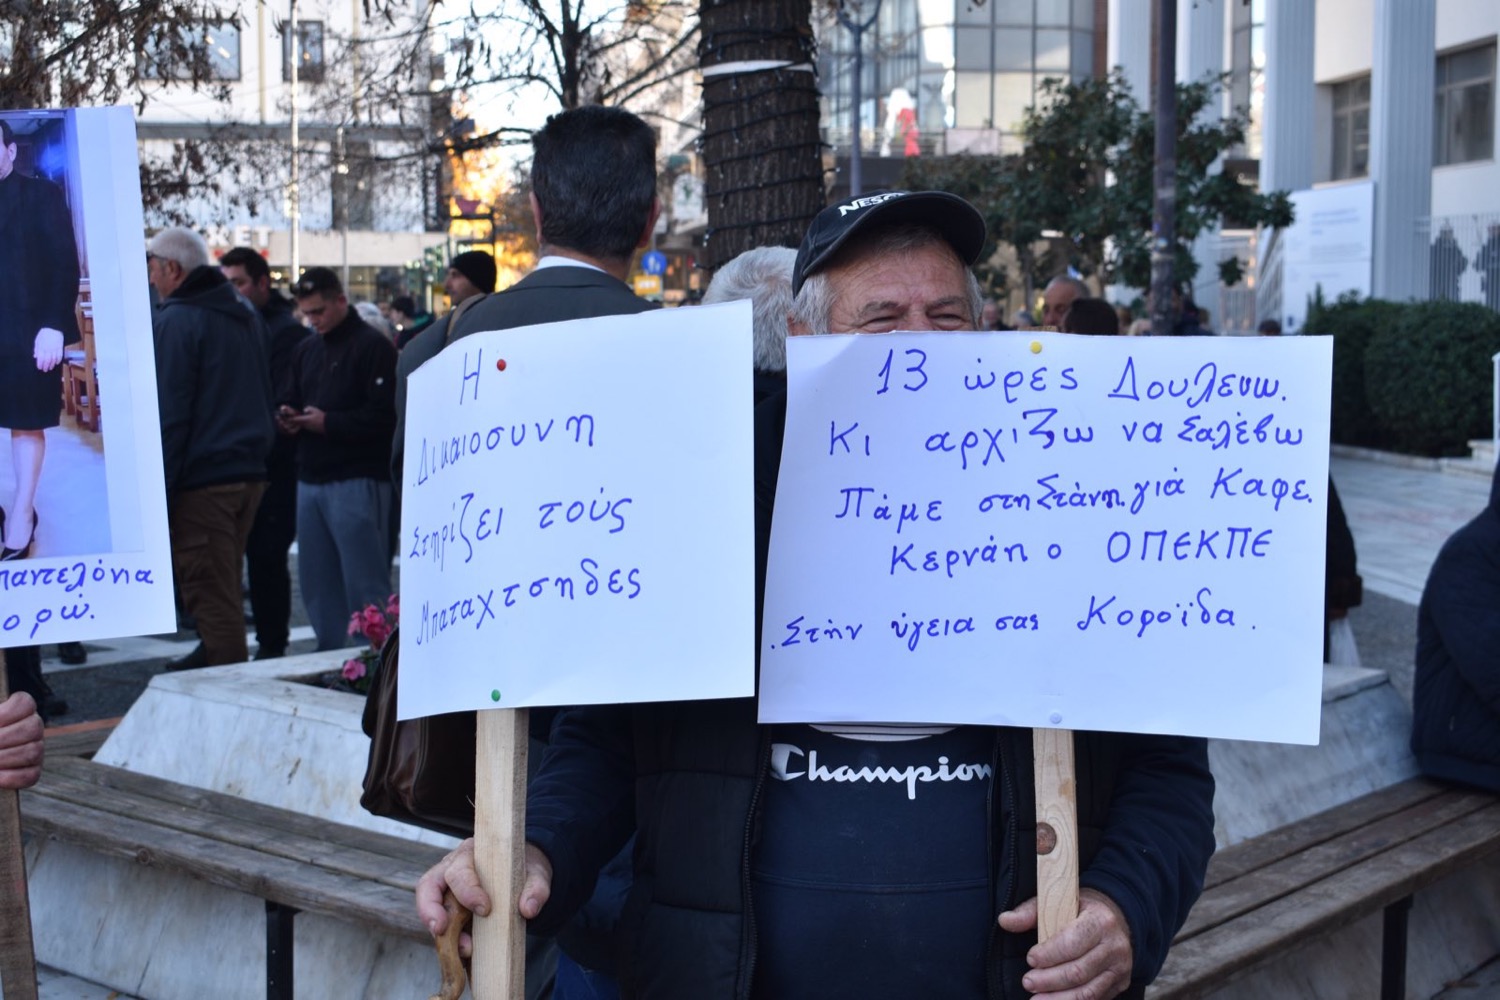 παντελόνια
ορώ.
Η
Δικαιοσυνη
Στηρίζει τούς
Μπαταχτσηδες
13 ώρες Δουλευω.
Κι αρχιζω να Σαλέβω
Πάμε στη Στάνη. γιά Καφε.
Κερνάη ο ΟΠΕΚΠΕ
.Στήν ύγεια σας Κοροϊδα.
Champion